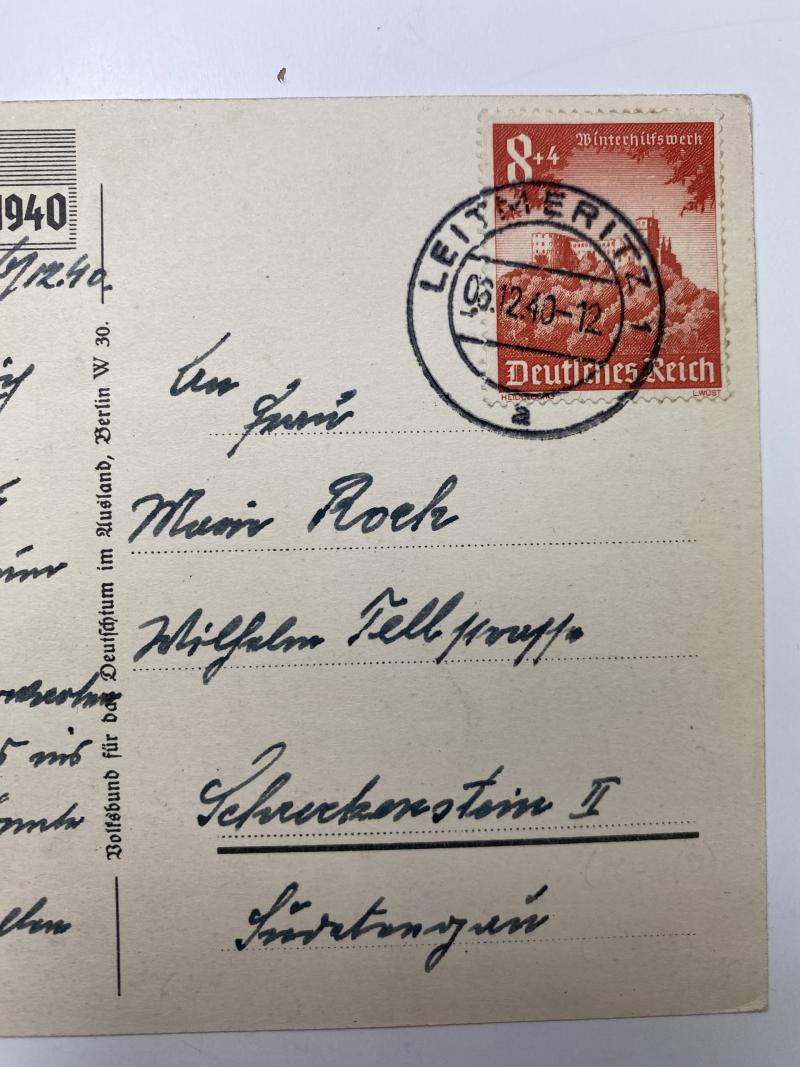 1940
8+4
Winterhilfswerk
LEITMERITZ 1
06.12.40-12
a
Deutsches Reich
HEIDELBERG
L.WÜST
12.40.
Volksbund für das Deutschtum im Ausland, Berlin W 30.
An
Frau
Marie Rock
Wilhelm Tellstrasse
Schreckenstein II
Sudetengau
ins